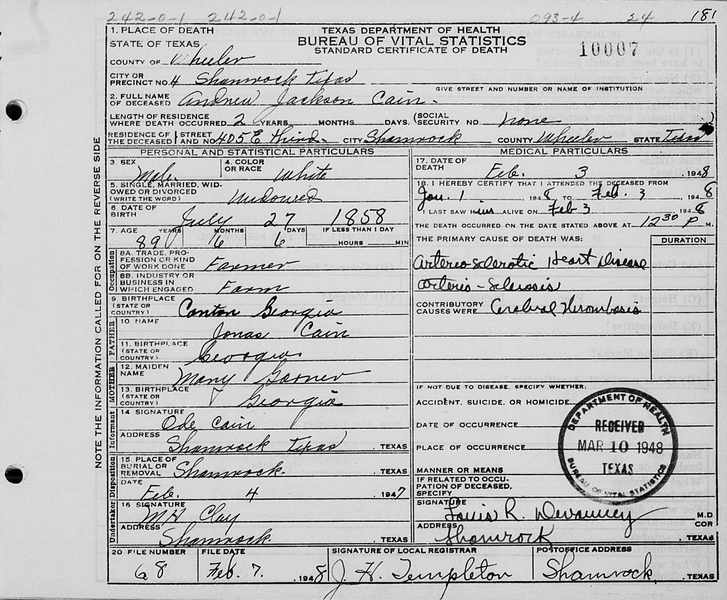 242-0-1 242-0-1 093-4 24 181
TEXAS DEPARTMENT OF HEALTH
BUREAU OF VITAL STATISTICS
STANDARD CERTIFICATE OF DEATH
10007
1. PLACE OF DEATH
STATE OF TEXAS
COUNTY OF Wheeler
CITY OR PRECINCT NO. 4 Shamrock Texas
GIVE STREET AND NUMBER OR NAME OF INSTITUTION
2. FULL NAME OF DECEASED Andrew Jackson Cain
LENGTH OF RESIDENCE WHERE DEATH OCCURRED 2 YEARS. MONTHS. DAYS. (SOCIAL SECURITY NO. none
RESIDENCE OF THE DECEASED STREET AND NO. 405 E third CITY Shamrock COUNTY Wheeler STATE Texas
NOTE THE INFORMATION CALLED FOR ON THE REVERSE SIDE
PERSONAL AND STATISTICAL PARTICULARS
3. SEX
4. COLOR OR RACE White
5. SINGLE, MARRIED, WIDOWED OR DIVORCED (WRITE THE WORD) Widowed
6. DATE OF BIRTH July 27 1858
7. AGE 89 YEARS 6 MONTHS 6 DAYS IF LESS THAN 1 DAY
HOURS MIN
Occupation
8A. TRADE, PROFESSION OR KIND OF WORK DONE Farmer
8B. INDUSTRY OR BUSINESS IN WHICH ENGAGED Farm
9. BIRTHPLACE (STATE OR COUNTRY) Canton Georgia
FATHER
10. NAME Jonas Cain
11. BIRTHPLACE (STATE OR COUNTRY) Georgia
MOTHER
12. MAIDEN NAME Mary Garner
13. BIRTHPLACE (STATE OR COUNTRY) Georgia
Informant
14. SIGNATURE Ode Cain
ADDRESS Shamrock Texas TEXAS
Disposition
15. PLACE OF BURIAL OR REMOVAL Shamrock TEXAS
DATE Feb. 4 1947
Undertaker
16. SIGNATURE MH Clay
ADDRESS Shamrock TEXAS
MEDICAL PARTICULARS
17. DATE OF DEATH Feb. 3 1948
18. I HEREBY CERTIFY THAT I ATTENDED THE DECEASED FROM
Jan. 1 1948 TO Feb. 3 1948
I LAST SAW him ALIVE ON Feb 3 1948
THE DEATH OCCURRED ON THE DATE STATED ABOVE AT 12:30 P M.
THE PRIMARY CAUSE OF DEATH WAS: DURATION
Arterio Sclerotic Heart Disease
Arterio-Sclerosis
CONTRIBUTORY CAUSES WERE: Cerebral Thrombosis
IF NOT DUE TO DISEASE, SPECIFY WHETHER:
ACCIDENT, SUICIDE, OR HOMICIDE
DATE OF OCCURRENCE
PLACE OF OCCURRENCE
MANNER OR MEANS
IF RELATED TO OCCUPATION OF DECEASED, SPECIFY
DEPARTMENT OF HEALTH
RECEIVED
MAR 10 1948
TEXAS
BUREAU OF VITAL STATISTICS
SIGNATURE Louis R. Devanney M.D
ADDRESS Shamrock COR TEXAS
20 FILE NUMBER FILE DATE SIGNATURE OF LOCAL REGISTRAR POSTOFFICE ADDRESS
68 Feb. 7. 1948 J. H. Templeton Shamrock, TEXAS